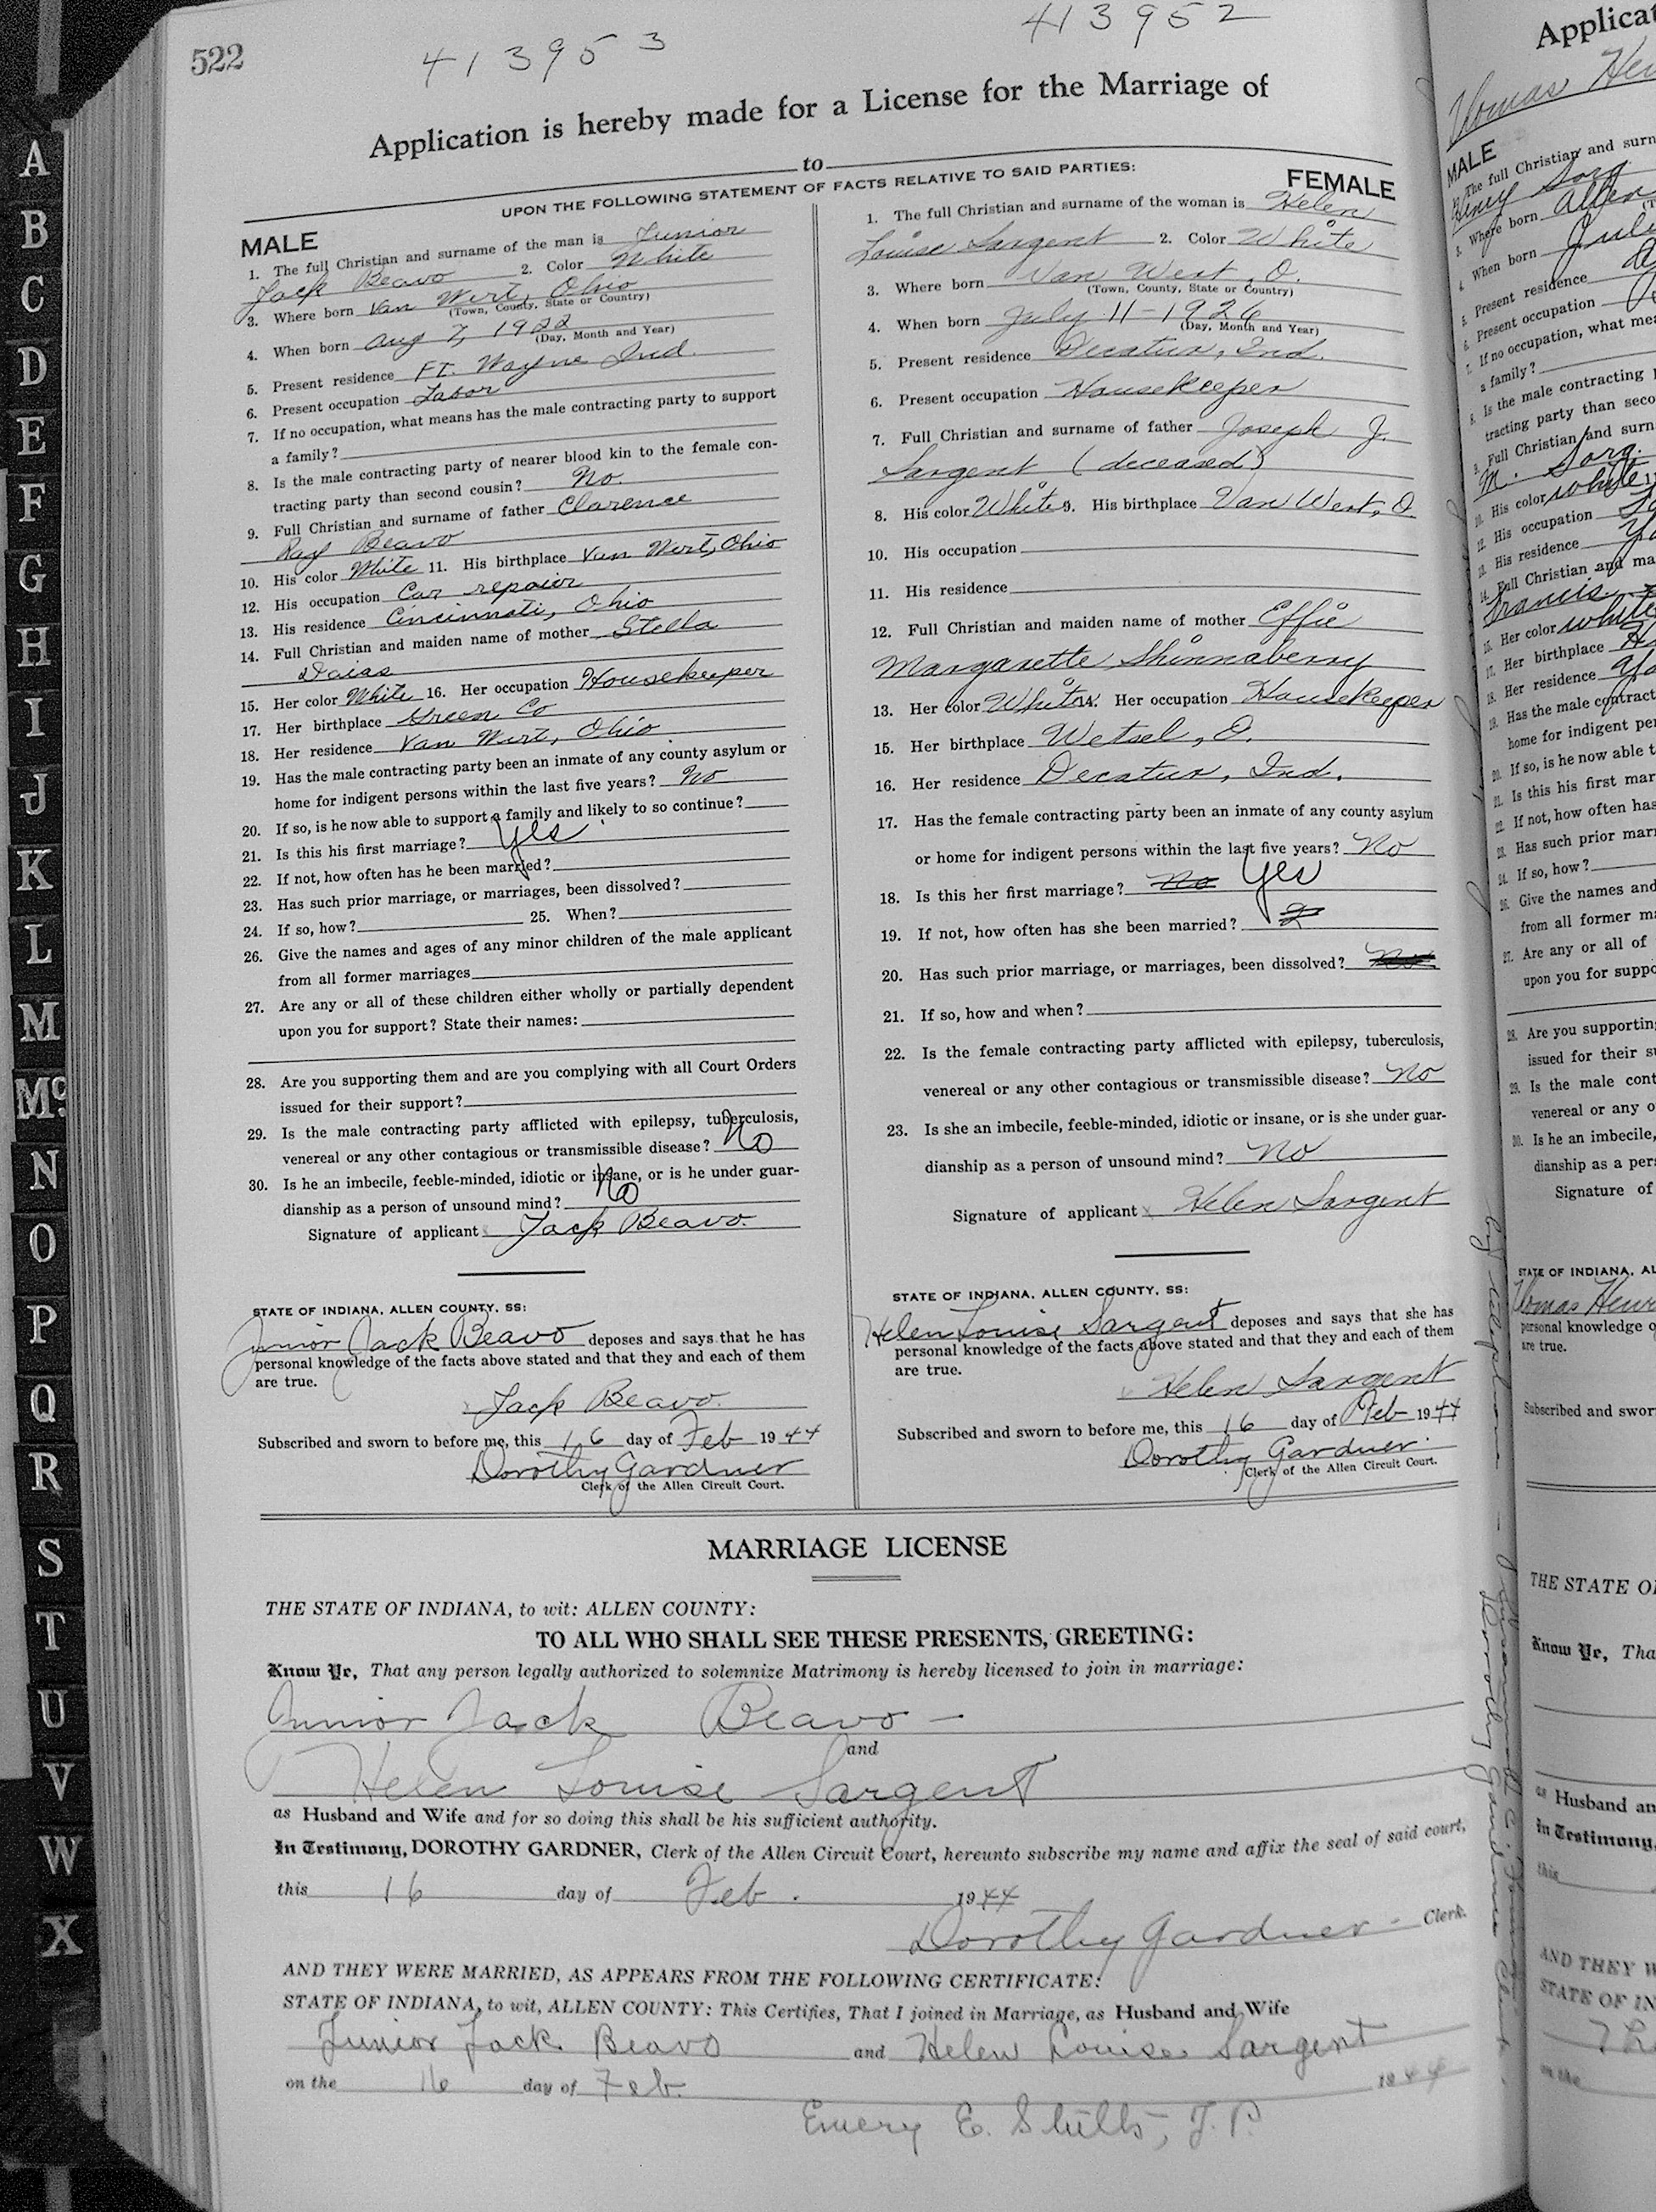 522
413953
413952
Application is hereby made for a License for the Marriage of
to
UPON THE FOLLOWING STATEMENT OF FACTS RELATIVE TO SAID PARTIES:
MALE
1. The full Christian and surname of the man is Junior
Jack Beavo 2. Color White
3. Where born Van Wert, Ohio
(Town, County, State or Country)
4. When born Aug 7, 1922
(Day, Month and Year)
5. Present residence Ft. Wayne Ind.
6. Present occupation Labor
7. If no occupation, what means has the male contracting party to support
a family?
8. Is the male contracting party of nearer blood kin to the female con-
tracting party than second cousin? No.
9. Full Christian and surname of father Clarence
Ray Beavo
10. His color White 11. His birthplace Van Wert, Ohio
12. His occupation Car repair
13. His residence Cincinnati, Ohio
14. Full Christian and maiden name of mother Stella
15. Her color White 16. Her occupation Housekeeper
17. Her birthplace Green Co
18. Her residence Van Wert, Ohio
19. Has the male contracting party been an inmate of any county asylum or
home for indigent persons within the last five years? No
20. If so, is he now able to support a family and likely to so continue?
21. Is this his first marriage? Yes
22. If not, how often has he been married?
23. Has such prior marriage, or marriages, been dissolved?
24. If so, how? 25. When?
26. Give the names and ages of any minor children of the male applicant
from all former marriages
27. Are any or all of these children either wholly or partially dependent
upon you for support? State their names:
28. Are you supporting them and are you complying with all Court Orders
issued for their support?
29. Is the male contracting party afflicted with epilepsy, tuberculosis,
venereal or any other contagious or transmissible disease? No
30. Is he an imbecile, feeble-minded, idiotic or insane, or is he under guar-
dianship as a person of unsound mind? No
Signature of applicant Jack Beavo.
STATE OF INDIANA, ALLEN COUNTY, SS:
Junior Jack Beavo deposes and says that he has
personal knowledge of the facts above stated and that they and each of them
are true.
Jack Beavo.
Subscribed and sworn to before me, this 16 day of Feb 1944
Dorothy Gardner
Clerk of the Allen Circuit Court.
FEMALE
1. The full Christian and surname of the woman is Helen
Louise Sargent 2. Color White
3. Where born Van Wert, O.
(Town, County, State or Country)
4. When born July 11-1926
(Day, Month and Year)
5. Present residence Decatur, Ind.
6. Present occupation Housekeeper
7. Full Christian and surname of father Joseph J.
Sargent (deceased)
8. His color White 9. His birthplace Van Wert, O
10. His occupation
11. His residence
12. Full Christian and maiden name of mother Effie
Margarette Shinnaberry
13. Her color White 14. Her occupation Housekeeper
15. Her birthplace Wetsel, O.
16. Her residence Decatur, Ind.
17. Has the female contracting party been an inmate of any county asylum
or home for indigent persons within the last five years? No
18. Is this her first marriage? No Yes
19. If not, how often has she been married? 2
20. Has such prior marriage, or marriages, been dissolved? No
21. If so, how and when?
22. Is the female contracting party afflicted with epilepsy, tuberculosis,
venereal or any other contagious or transmissible disease? No
23. Is she an imbecile, feeble-minded, idiotic or insane, or is she under guar-
dianship as a person of unsound mind? No
Signature of applicant x Helen Sargent
STATE OF INDIANA, ALLEN COUNTY, SS:
Helen Louise Sargent deposes and says that she has
personal knowledge of the facts above stated and that they and each of them
are true.
Helen Sargent
Subscribed and sworn to before me, this 16 day of Feb 1944
Dorothy Gardner.
Clerk of the Allen Circuit Court.
MARRIAGE LICENSE
THE STATE OF INDIANA, to wit: ALLEN COUNTY:
TO ALL WHO SHALL SEE THESE PRESENTS, GREETING:
Know Ye, That any person legally authorized to solemnize Matrimony is hereby licensed to join in marriage:
Junior Jack Beavo —
and
Helen Louise Sargent
as Husband and Wife and for so doing this shall be his sufficient authority.
In Testimony, DOROTHY GARDNER, Clerk of the Allen Circuit Court, hereunto subscribe my name and affix the seal of said court,
this 16 day of Feb. 1944
Dorothy Gardner - Clerk.
AND THEY WERE MARRIED, AS APPEARS FROM THE FOLLOWING CERTIFICATE:
STATE OF INDIANA, to wit, ALLEN COUNTY: This Certifies, That I joined in Marriage, as Husband and Wife
Junior Jack Beavo and Helen Louise Sargent
on the 16 day of Feb. 1944
Emery E. Stults, J.P.
A
B
C
D
E
F
G
H
I
J
K
L
M
Mc
N
O
P
Q
R
S
T
U
V
W
X
MALE
The full Christian and surn
Where born Allen
When born
Present residence
Present occupation
If no occupation, what mea
a family?
Is the male contracting
tracting party than seco
Full Christian and surn
M. Sorg.
His color white
His occupation
His residence
Full Christian and ma
Francis
Her color white
Her birthplace
Her residence
Has the male contract
home for indigent per
If so, is he now able t
Is this his first mar
If not, how often has
Has such prior marr
If so, how?
Give the names and
from all former m
Are any or all of
upon you for suppo
28. Are you supporting
issued for their s
29. Is the male cont
venereal or any o
30. Is he an imbecile,
dianship as a per
Signature of
STATE OF INDIANA, AL
Thomas Henr
personal knowledge o
are true.
Subscribed and swor
THE STATE O
Know Ye, Tha
as Husband an
In Testimony,
this
AND THEY W
STATE OF IN
on the